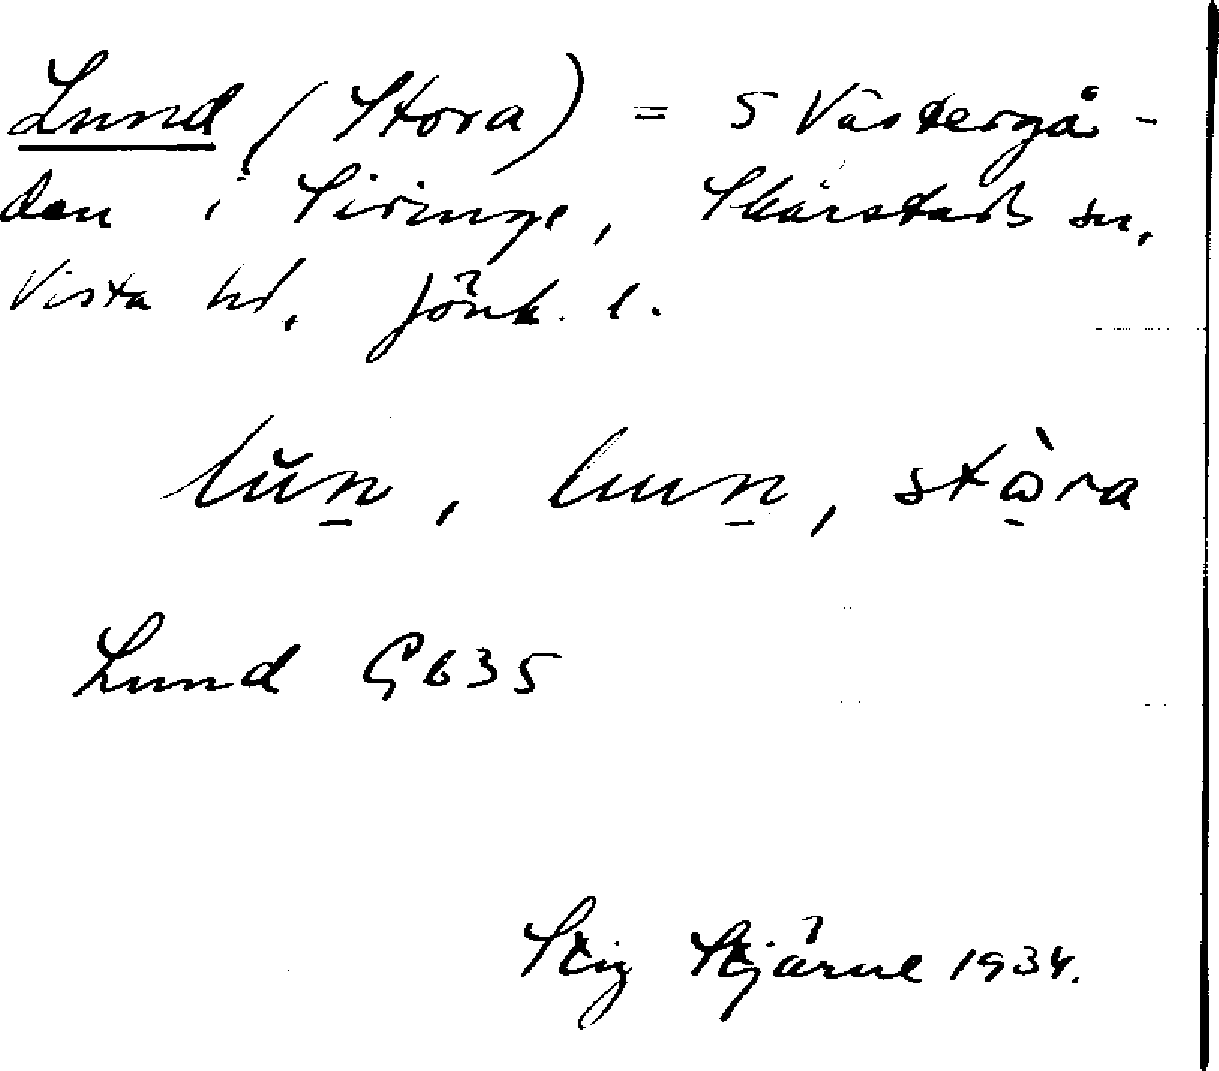 Lund (Stora) = S Västergå-
den i Siringe, Skärstads sn,
Vista hd, Jönk. l.
lŭn̲, lun̲, stò̲ra
Lund G635
Stig Stjärne 1934.